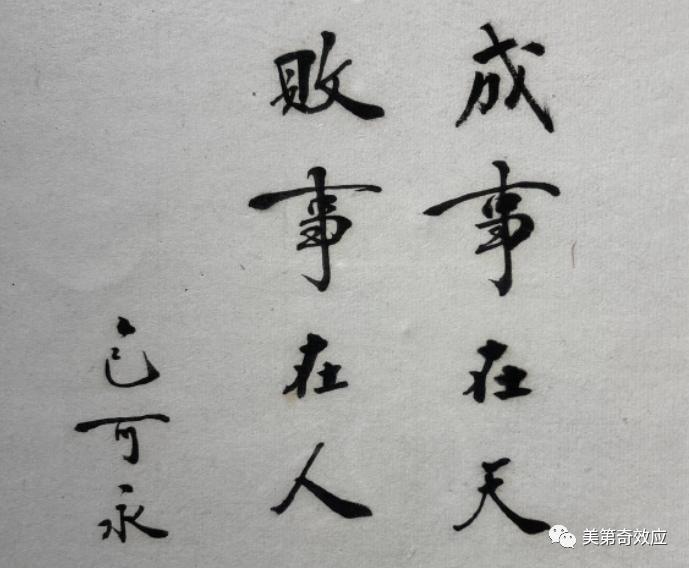 成事在天
敗事在人
可永
美第奇效应